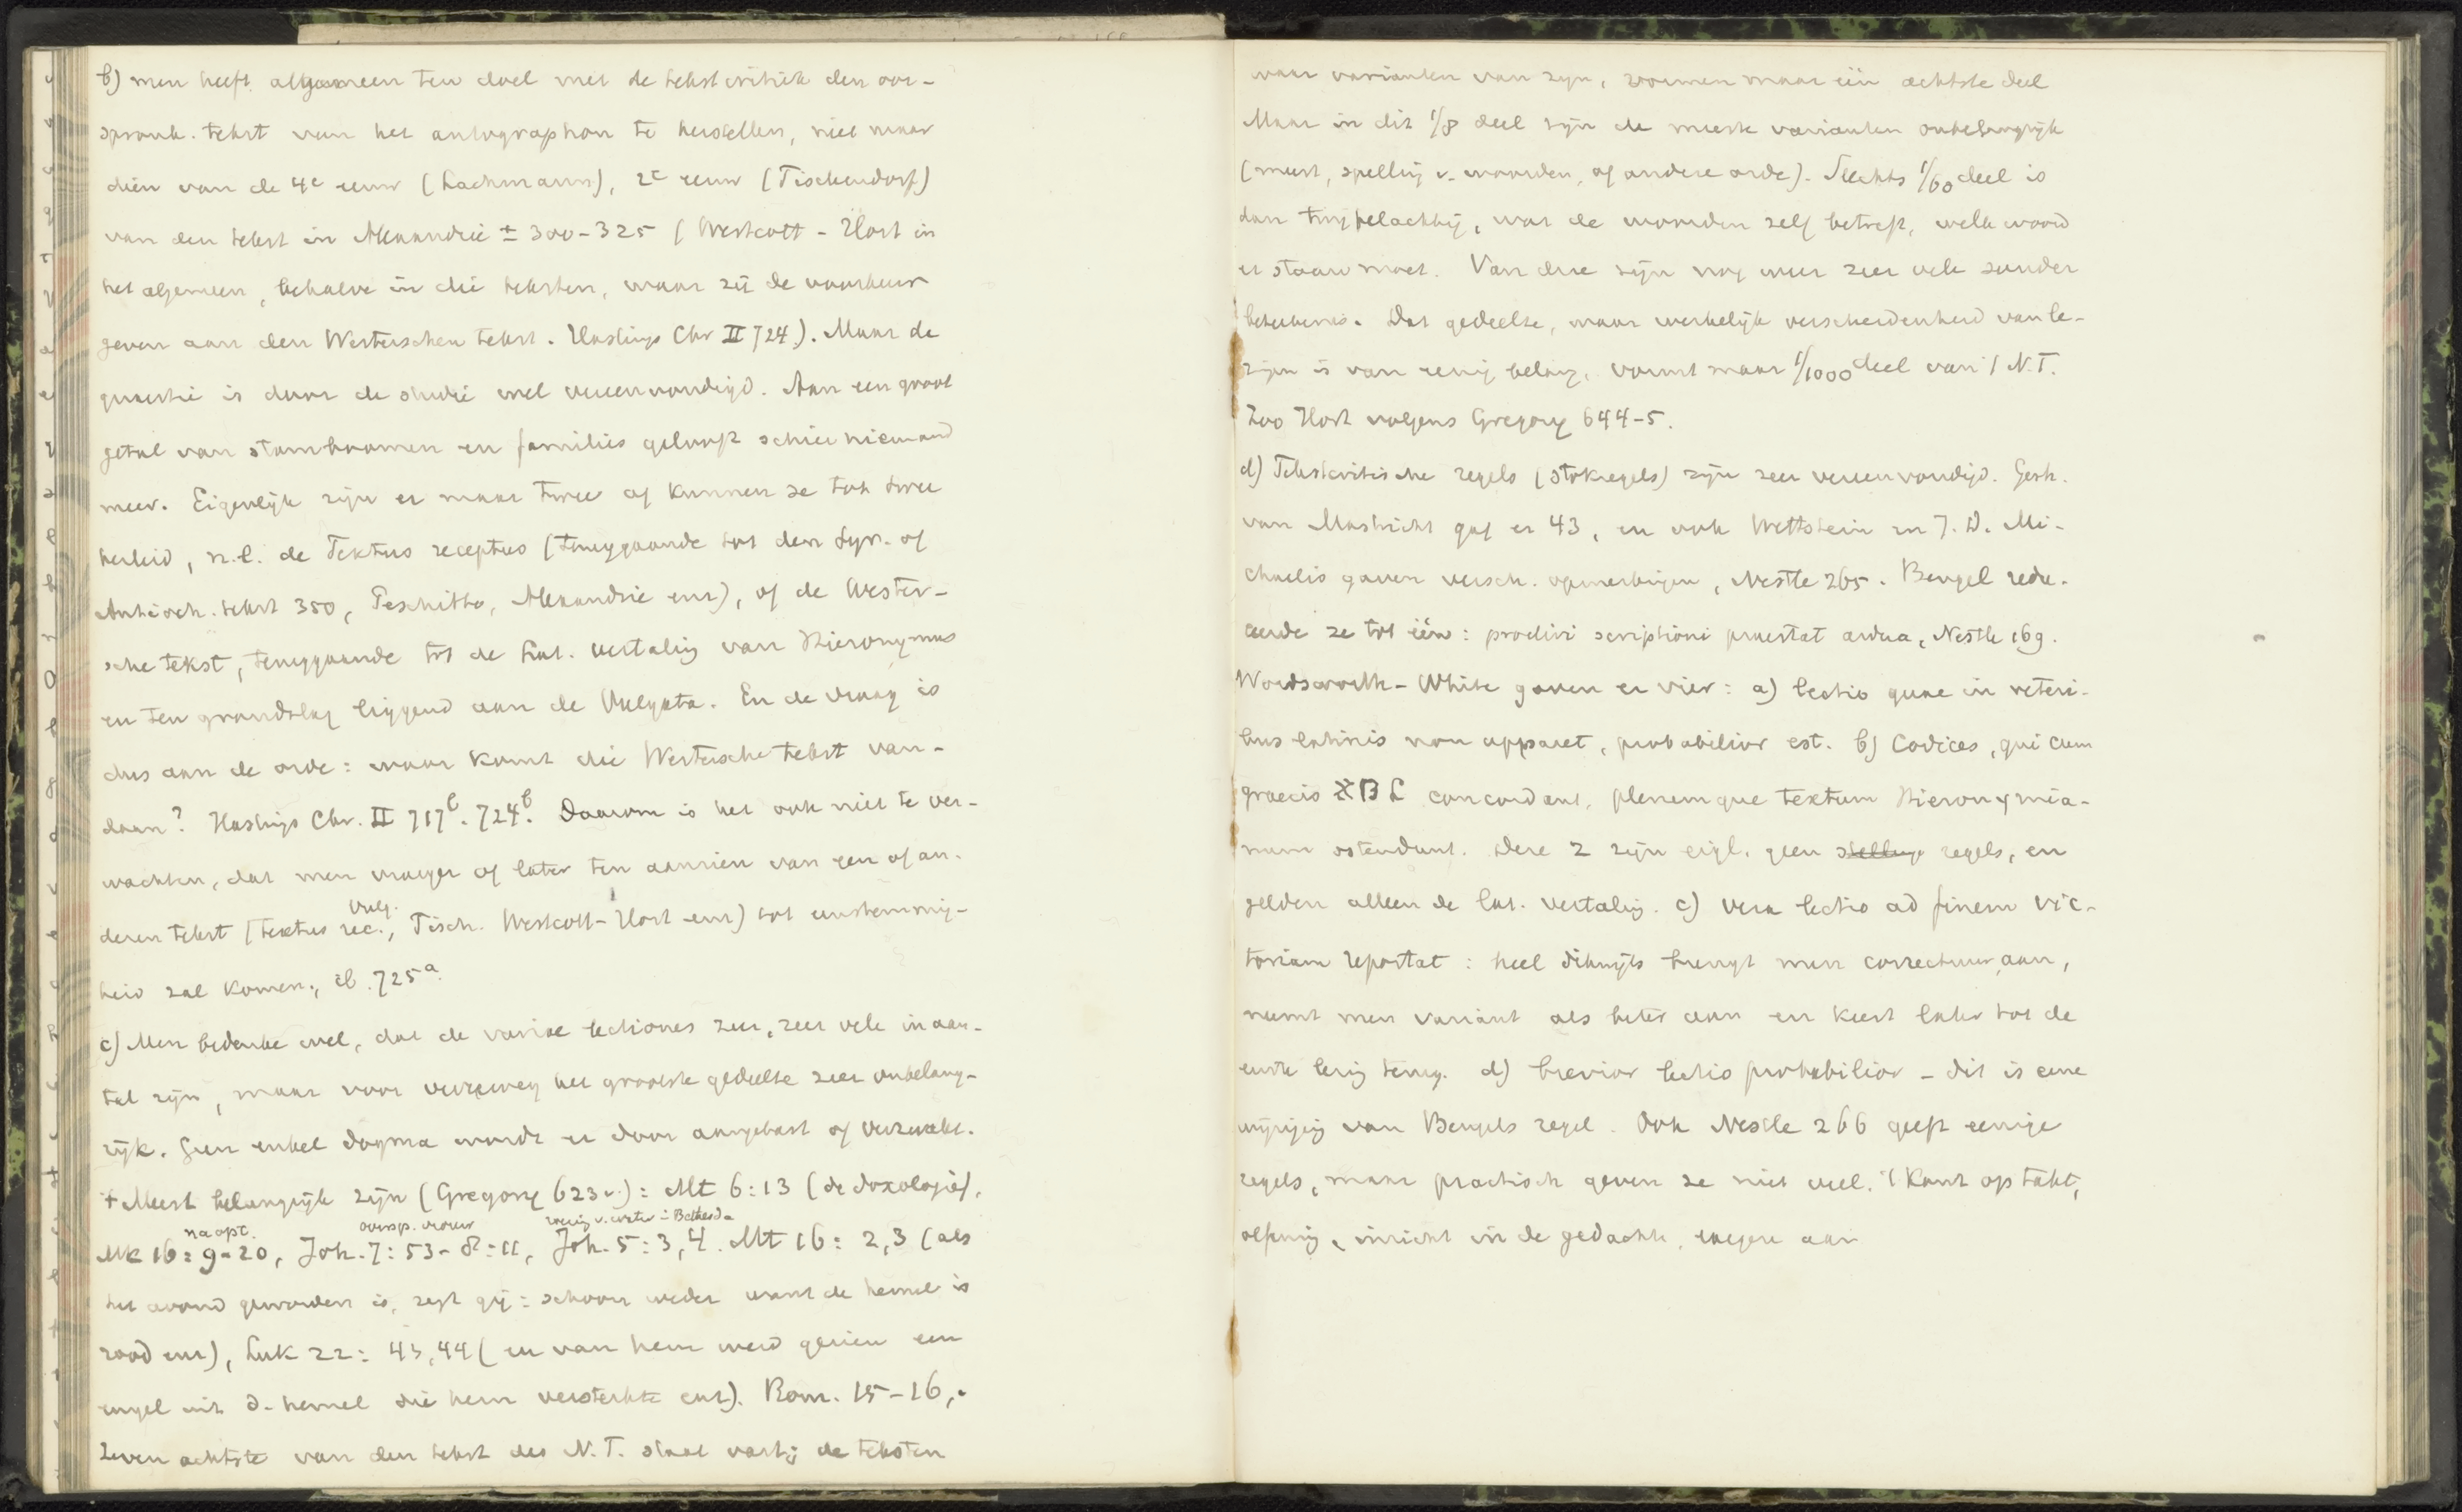 b) men heeft algemeen ten doel met de tekstcritiek den oor-
spronk. tekst van het autographon te herstellen, niet maar
dien van de 4e eeuw (Lachmann), 2e eeuw (Tischendorf)
van den tekst in Alexandrië ± 300-325 (Westcott-Hort in
het algemeen, behalve in die teksten, waar zij de voorkeur
geven aan den Westerschen tekst. Hastings Chr II 724). Maar de
quaestie is door de studie wel vereenvoudigd. Aan een groot
getal van stamboomen en families gelooft schier niemand
meer. Eigenlijk zijn er maar twee of kunnen ze tot twee
herleid, n.l. de Textus receptus (teruggaande tot den Syr. of
Antioch. tekst 350, Peschitto, Alexandrië enz), of de Wester-
sche tekst, teruggaande tot de Lat. vertaling van Hieronymus
en ten grondslag liggend aan de Vulgata. En de vraag is
dus aan de orde: waar komt die Westersche tekst van-
daan? Hastings Chr. II 717b. 724b. Daarom is het ook niet te ver-
wachten, dat men vroeger of later ten aanzien van een of an-
deren tekst (textus rec., Vulg. Tisch. Westcott-Hort enz) tot eenstemmig-
heid zal komen, ib. 725a.
c) Men bedenke wel, dat de variae lectiones zeer, zeer vele in aan-
tal zijn, maar voor verreweg het grootste gedeelte zeer onbelang-
rijk. Geen enkel dogma wordt er door aangetast of verzwakt.
't Meest belangrijk zijn (Gregory 623v.): Mt 6:13 (de doxologie),
na opst. oversp. vrouw roering v. water in Bethesda
Mk 16:9-20, Joh. 7:53-8:11, Joh. 5:3,4. Mt 16:2,3 (als
het avond geworden is, zegt gij: schoon weder want de hemel is
rood enz), Luk 22:43,44 (en van hem werd gezien een
engel uit d. hemel die hem versterkte enz). Rom. 15-16,.
Zeven achtste van den tekst des N.T. staat vast; de teksten
waar varianten van zijn, vormen maar één achtste deel
Maar in dit 1/8 deel zijn de meeste varianten onbelangrijk
(meest, spelling v. woorden, of andere orde). Slechts 1/60 deel is
dan twijfelachtig, wat de woorden zelf betreft, welk woord
er staan moet. Van deze zijn nog weer zeer vele zonder
beteekenis. Dat gedeelte, waar werkelijk verscheidenheid van le-
zijn is van eenig belang, vormt maar 1/1000 deel van 't N.T.
Zoo Hort volgens Gregory 644-5.
d) Tekstcritische regels (stokregels) zijn zeer vereenvoudigd. Gerh.
van Mastricht gaf er 43, en ook Wettstein en J.D. Mi-
chaelis gaven versch. opmerkingen, Nestle 265. Bengel redu-
ceerde ze tot één: proclivi scriptioni praestat ardua, Nestle 169.
Wordsworth-White gaven er vier: a) lectio quae in veteri-
bus latinis non apparet, probabilior est. b) Codices, qui cum
graecis אBL concordant, plerumque textum Hieronymia-
num ostendunt. Deze 2 zijn eigl. geen stellings regels, en
gelden alleen de Lat. vertaling. c) vera lectio ad finem vic-
toriam reportat: heel dikwijls brengt men correctuur aan,
neemt men variant als beter aan en keert later tot de
eerste lezing terug. d) brevior lectio probabilior - dit is eene
wijziging van Bengels regel. Ook Nestle 266 geeft eenige
regels, maar practisch geven ze niet veel. 't Komt op takt,
oefening, inzicht in de gedachte, enz aan